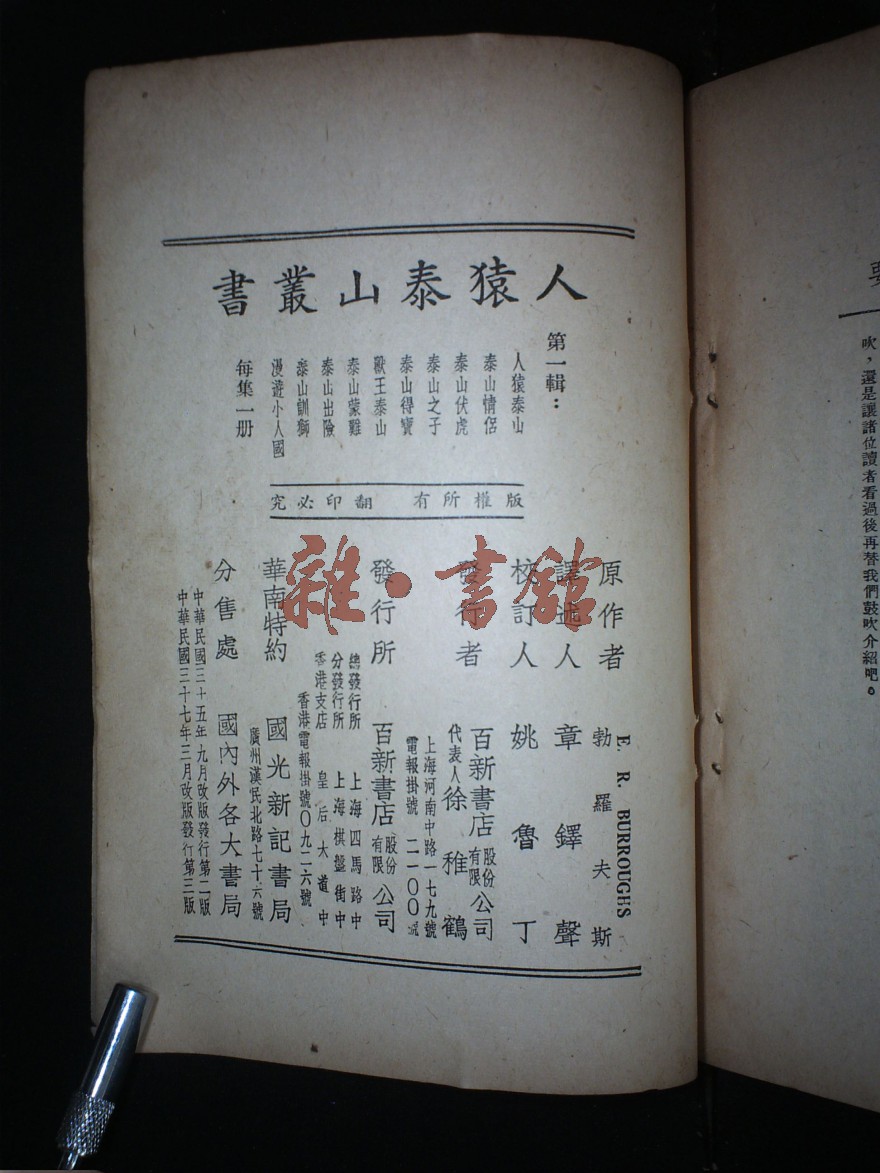 人猿泰山叢書
第一輯：
人猿泰山
泰山情侶
泰山伏虎
泰山之子
泰山得寶
獸王泰山
泰山蒙難
泰山出險
泰山馴獅
漫遊小人國
每集一册
版權所有 翻印必究
原作者 E. R. BURROUGHS 勃羅夫斯
譯述人 章鐸聲
校訂人 姚魯丁
發行者 百新書店股份有限公司
代表人 徐稚鶴
上海河南中路一七九號
電報掛號 二一〇〇號
發行所 百新書店股份有限公司
總發行所 上海四馬路中
分發行所 上海棋盤街中
香港支店 皇后大道中
香港電報掛號〇九二六號
華南特約 國光新記書局
廣州漢民北路七十六號
分售處 國內外各大書局
中華民國三十五年九月改版發行第二版
中華民國三十七年三月改版發行第三版
雜·書館
吹，還是讓諸位讀者看過後再替我們鼓吹介紹吧。